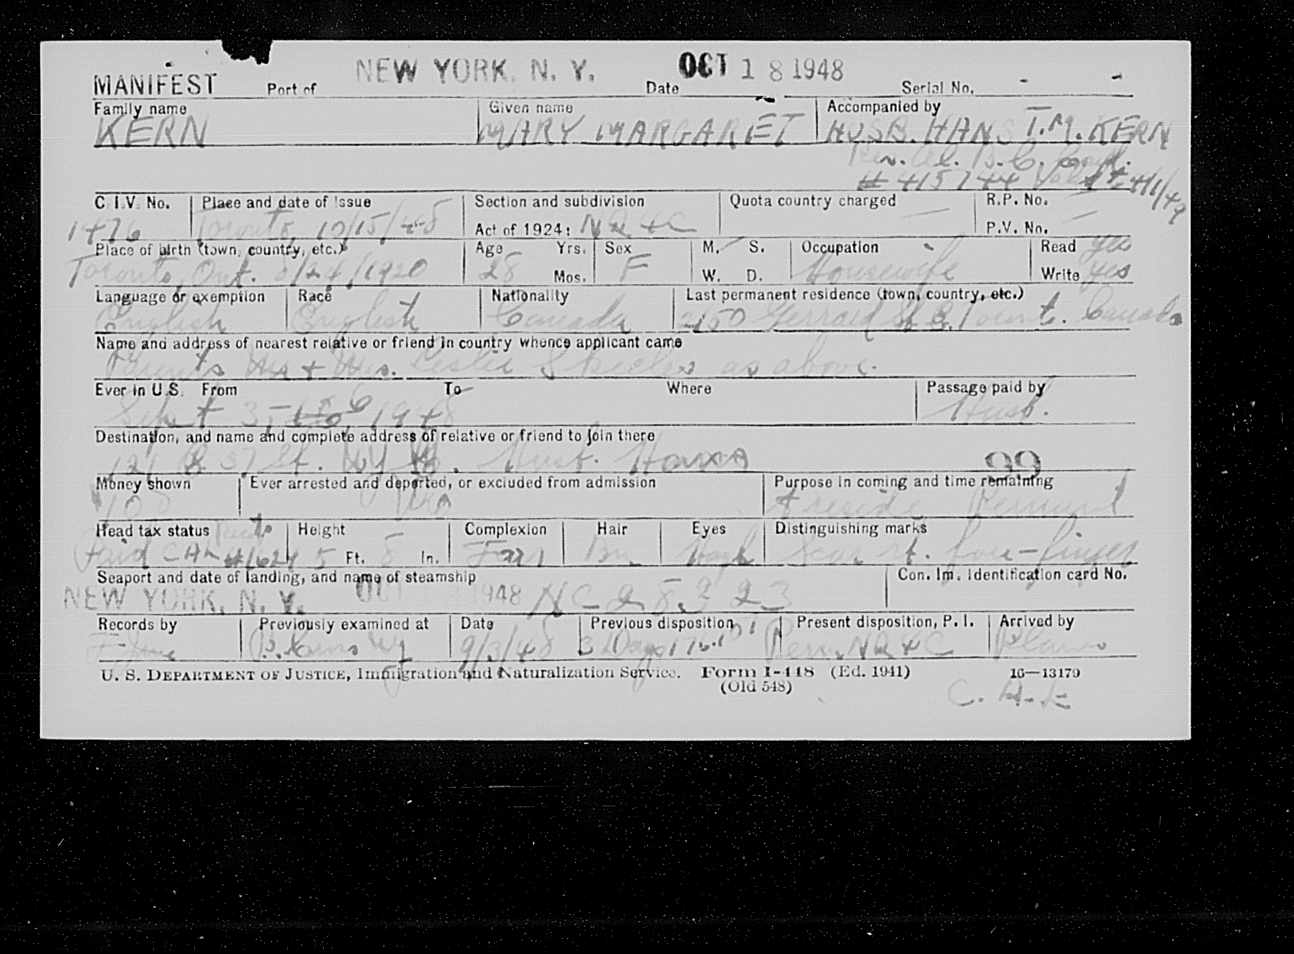 MANIFEST Port of NEW YORK, N. Y. Date OCT 18 1948 Serial No. - -
Family name Given name Accompanied by
KERN MARY MARGARET HUSB. HANS T.M. KERN
# 415744 4/1/49
C.I.V. No. Place and date of issue Section and subdivision Quota country charged R.P. No.
1476 Toronto 10/15/48 Act of 1924: NQ 4C — P.V. No. —
Place of birth (town, country, etc.) Age Yrs. Sex M. S. Occupation Read yes
Toronto, Ont. /24/1920 28 Mos. F W. D. Housewife Write yes
Language or exemption Race Nationality Last permanent residence (town, country, etc.)
English English Canada 2150 Gerrard St. E. Toront. Canada
Name and address of nearest relative or friend in country whence applicant came
Parents Mr + Mrs. Leslie as above.
Ever in U.S. From To Where Passage paid by
Sept 3, 1948 Husb.
Destination, and name and complete address of relative or friend to join there
121 E 37 St. NY Husb. Hans 99
Money shown Ever arrested and deported, or excluded from admission Purpose in coming and time remaining
No reside Permanent
Head tax status Height Complexion Hair Eyes Distinguishing marks
Paid #1624 5 Ft. 8 In. Fair Bn Hazel Scar rt. fore-finger
Seaport and date of landing, and name of steamship Con. Im. Identification card No.
NEW YORK, N. Y. OCT 1948 NC 28323
Records by Previously examined at Date Previous disposition Present disposition, P. I. Arrived by
9/3/48 3 Days Perm. NQ 4C Plane
U. S. DEPARTMENT OF JUSTICE, Immigration and Naturalization Service. Form I-448 (Ed. 1941) 16—13179
(Old 548)
C. H. E